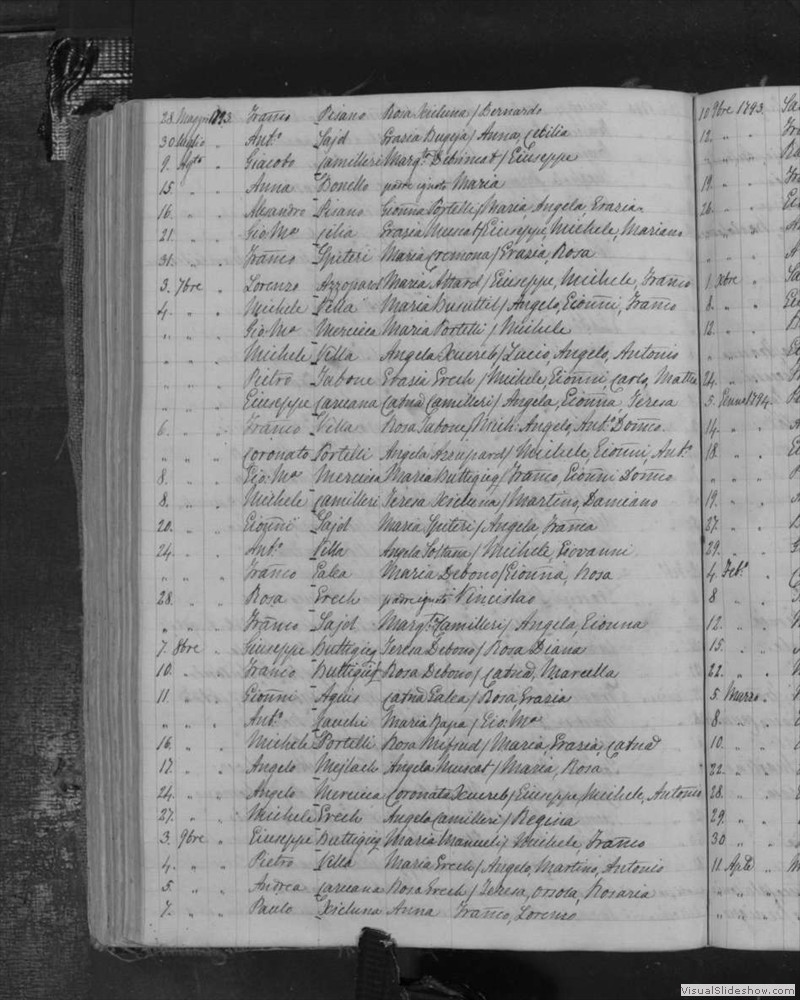 28 Maggio 1793. Franco Pisano Rosa Xicluna / Bernardo
30 Luglio „ Ant.o Sajd Grazia Bugeja / Anna, Cecilia
9. Agto „ Giacobo Camilleri Marg.ta Debono / Giuseppe
15. „ „ Anna Bonello padre ignoto Maria
16. „ „ Alesandro Pisano Gionna Portelli / Maria, Angela, Grazia
21. „ „ Gio Ma Cilia Grazia Muscat / Giuseppe, Michele, Mariano
31. „ „ Franco Spiteri Maria Cremona / Grazia, Rosa
3. 7bre „ Lorenzo Azzopard Maria Attard / Giuseppe, Michele, Franco
4. „ „ Michele Vella Maria Busuttil / Angelo, Gionni, Franco
„ „ „ Gio Ma Mercieca Maria Portelli / Michele
„ „ „ Michele Vella Angela Xuereb / Lucio, Angelo, Antonio
„ „ „ Pietro Tabone Grazia Grech / Michele, Gionni, Carlo, Matteo
„ „ „ Giuseppe Caruana Catna Camilleri / Angela, Gionna, Teresa
6. „ „ Franco Vella Rosa Tabone / Mich: Angelo, Ant.o Domco
„ „ „ Coronato Portelli Angela Azzopard / Michele, Gionni, Ant.o
8. „ „ Gio: Ma Mercieca Maria Buttigieg / Franco, Gionni Domco
8. „ „ Michele Camilleri Teresa Xicluna / Martino, Damiano
20. „ „ Gionni Sajd Maria Spiteri / Angela, Franca
24. „ „ Ant.o Vella Angela Soltana / Michele, Giovanni
„ „ „ Franco Galea Maria Debono / Gionna, Rosa
28. „ „ Rosa Grech padre ignoto Vincislao
„ „ „ Franco Sajd Marg.ta Camilleri / Angela, Gionna
7. 8bre „ Giuseppe Buttigieg Teresa Debono / Rosa Diana
10. „ „ Franco Buttigieg Rosa Debono / Catna, Marcella
11. „ „ Gionni Agius Catna Galea / Rosa, Grazia
„ „ „ Ant.o Maria Rapa / Gio: Ma
16. „ „ Michele Portelli Rosa Mifsud / Maria, Grazia, Catna
17. „ „ Angelo Mejlach Angela Muscat / Maria, Rosa
24. „ „ Angelo Mercieca Coronata Xuereb / Giuseppe, Michele, Antonio
27. „ „ Michele Grech Angela Camilleri / Regina
3. 9bre „ Giuseppe Buttigieg Maria Manueli / Michele, Franco
4. „ „ Pietro Vella Maria Grech / Angelo, Martino, Antonio
5. „ „ Andrea Caruana Rosa Grech / Teresa, Orsola, Rosaria
7. „ „ Paulo Xicluna Anna Franco, Lorenzo
10 9bre 1793
12. „ „
„ „ „
19. „ „
26. „ „
„ „ „
1 Xbre „
8. „ „
12. „ „
„ „ „
24. „ „
5. Genno 1794.
14. „ „
18. „ „
„ „ „
19. „ „
27. „ „
29. „ „
4 Feb.o „
8 „ „
12. „ „
15. „ „
22. „ „
5. Marzo „
8. „ „
10. „ „
22. „ „
28. „ „
29. „ „
30 „ „
11. Aple „
„ „ „
„ „ „
VisualSlideshow.com